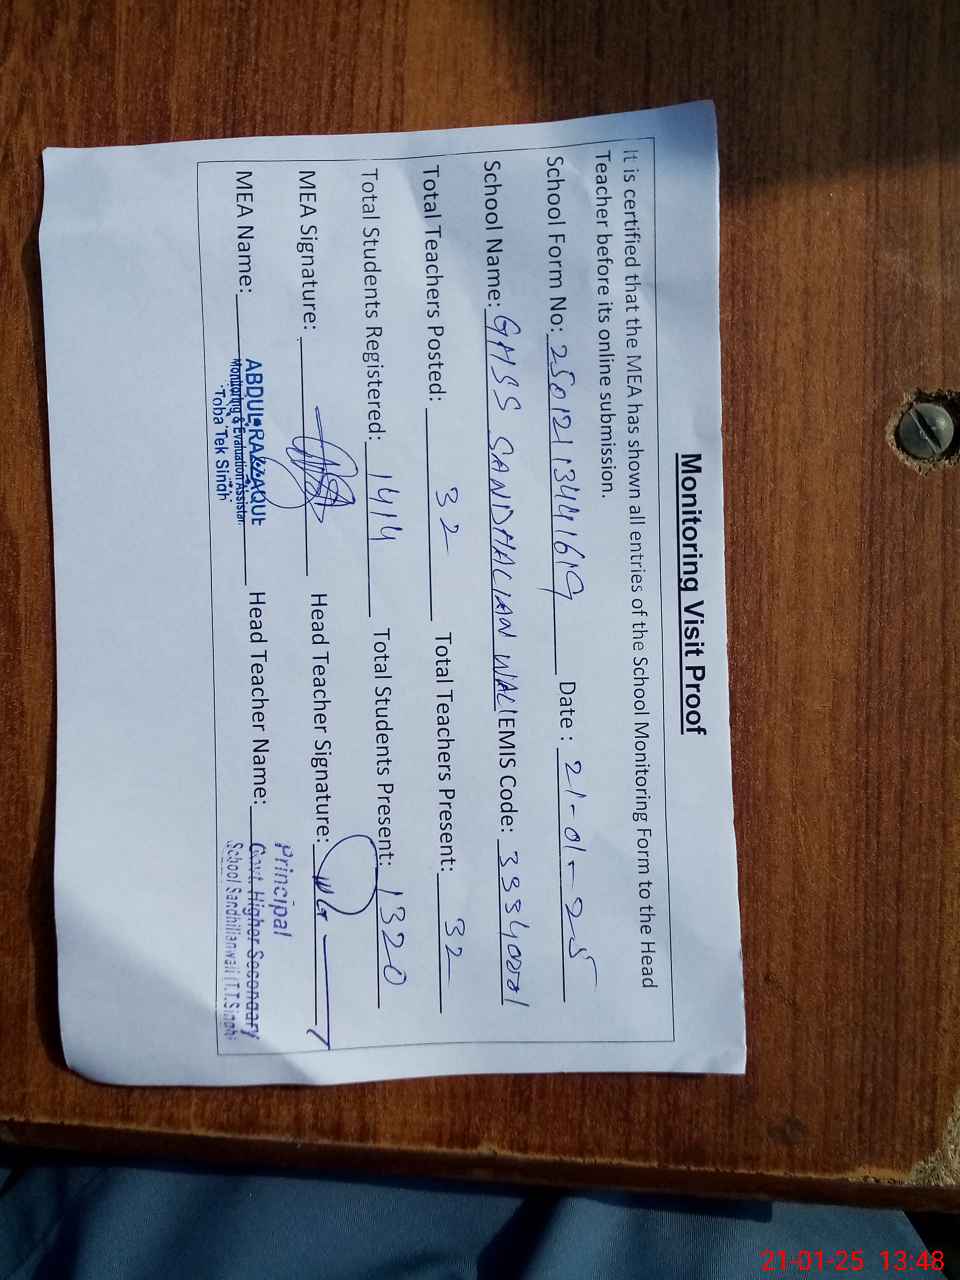 Monitoring Visit Proof
It is certified that the MEA has shown all entries of the School Monitoring Form to the Head
Teacher before its online submission.
School Form No: 25012113441619 Date : 21-01-25
School Name: GHSS SANDHALIAN WALI EMIS Code: 33340001
Total Teachers Posted: 32 Total Teachers Present: 32
Total Students Registered: 1414 Total Students Present: 1320
MEA Signature: Head Teacher Signature:
MEA Name: ABDUL RAZZAQUE Head Teacher Name: Principal
Monitoring & Evaluation Assistant Govt. Higher Secondary
Toba Tek Singh School Sandhilianwali (T.T.Singh)
21-01-25 13:48